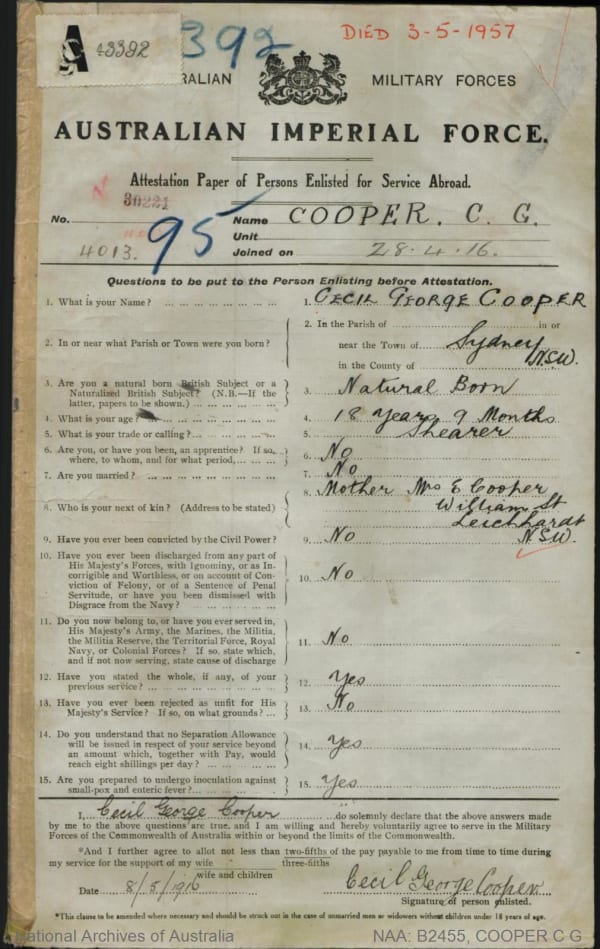 A
43392
392
DIED 3-5-1957
RALIAN MILITARY FORCES
AUSTRALIAN IMPERIAL FORCE.
Attestation Paper of Persons Enlisted for Service Abroad.
N 30221
No. 4013. 95 Name COOPER. C. G.
Unit
Joined on 28.4.16.
Questions to be put to the Person Enlisting before Attestation.
1. What is your Name? ... 1. CECIL GEORGE COOPER
2. In or near what Parish or Town were you born? 2. In the Parish of ... in or
near the Town of Sydney
in the County of N.S.W.
3. Are you a natural born British Subject or a
Naturalized British Subject? (N.B.—If the
latter, papers to be shown.) ... 3. Natural Born
4. What is your age? ... 4. 18 Years 9 Months
5. What is your trade or calling? ... 5. Shearer
6. Are you, or have you been, an apprentice? If so,
where, to whom, and for what period, ... 6. No
7. Are you married? ... 7. No
8. Who is your next of kin? (Address to be stated) 8. Mother Mrs E Cooper
William St
Leichhardt
N.S.W.
9. Have you ever been convicted by the Civil Power? 9. No
10. Have you ever been discharged from any part of
His Majesty's Forces, with Ignominy, or as In-
corrigible and Worthless, or on account of Con-
viction of Felony, or of a Sentence of Penal
Servitude, or have you been dismissed with
Disgrace from the Navy? ... 10. No
11. Do you now belong to, or have you ever served in,
His Majesty's Army, the Marines, the Militia,
the Militia Reserve, the Territorial Force, Royal
Navy, or Colonial Forces? If so, state which,
and if not now serving, state cause of discharge 11. No
12. Have you stated the whole, if any, of your
previous service? ... 12. Yes
13. Have you ever been rejected as unfit for His
Majesty's Service? If so, on what grounds? ... 13. No
14. Do you understand that no Separation Allowance
will be issued in respect of your service beyond
an amount which, together with Pay, would
reach eight shillings per day? ... 14. Yes
15. Are you prepared to undergo inoculation against
small-pox and enteric fever? ... 15. Yes
I, Cecil George Cooper do solemnly declare that the above answers made
by me to the above questions are true, and I am willing and hereby voluntarily agree to serve in the Military
Forces of the Commonwealth of Australia within or beyond the limits of the Commonwealth.
*And I further agree to allot not less than two-fifths of the pay payable to me from time to time during
my service for the support of my wife three-fifths
wife and children
Date 8/5/1916 Cecil George Cooper
Signature of person enlisted.
*This clause to be amended where necessary and should be struck out in the case of unmarried men or widowers without children under 18 years of age.
National Archives of Australia NAA: B2455, COOPER C G